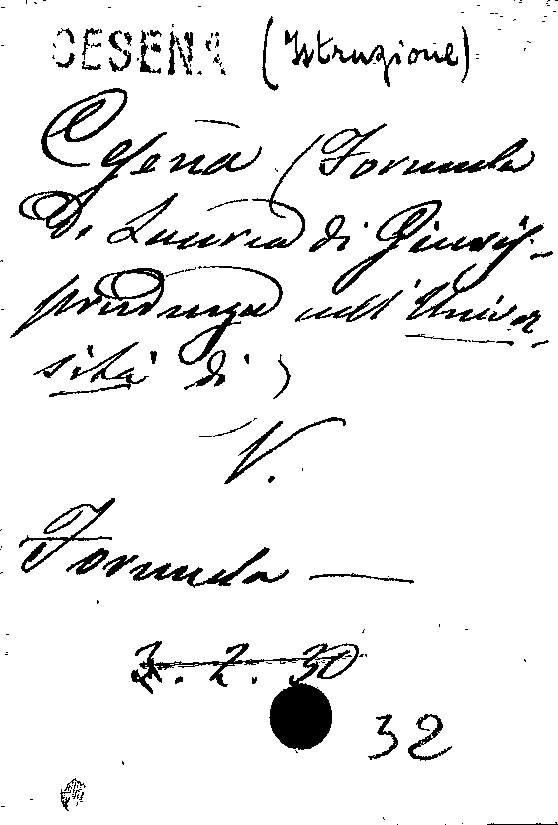 CESENA (Istruzione)
Cesena (Formula
di Laurea di Giuris-
prudenza nell' Univer-
sità di)
V.
Formula —
3. 2. 30
32